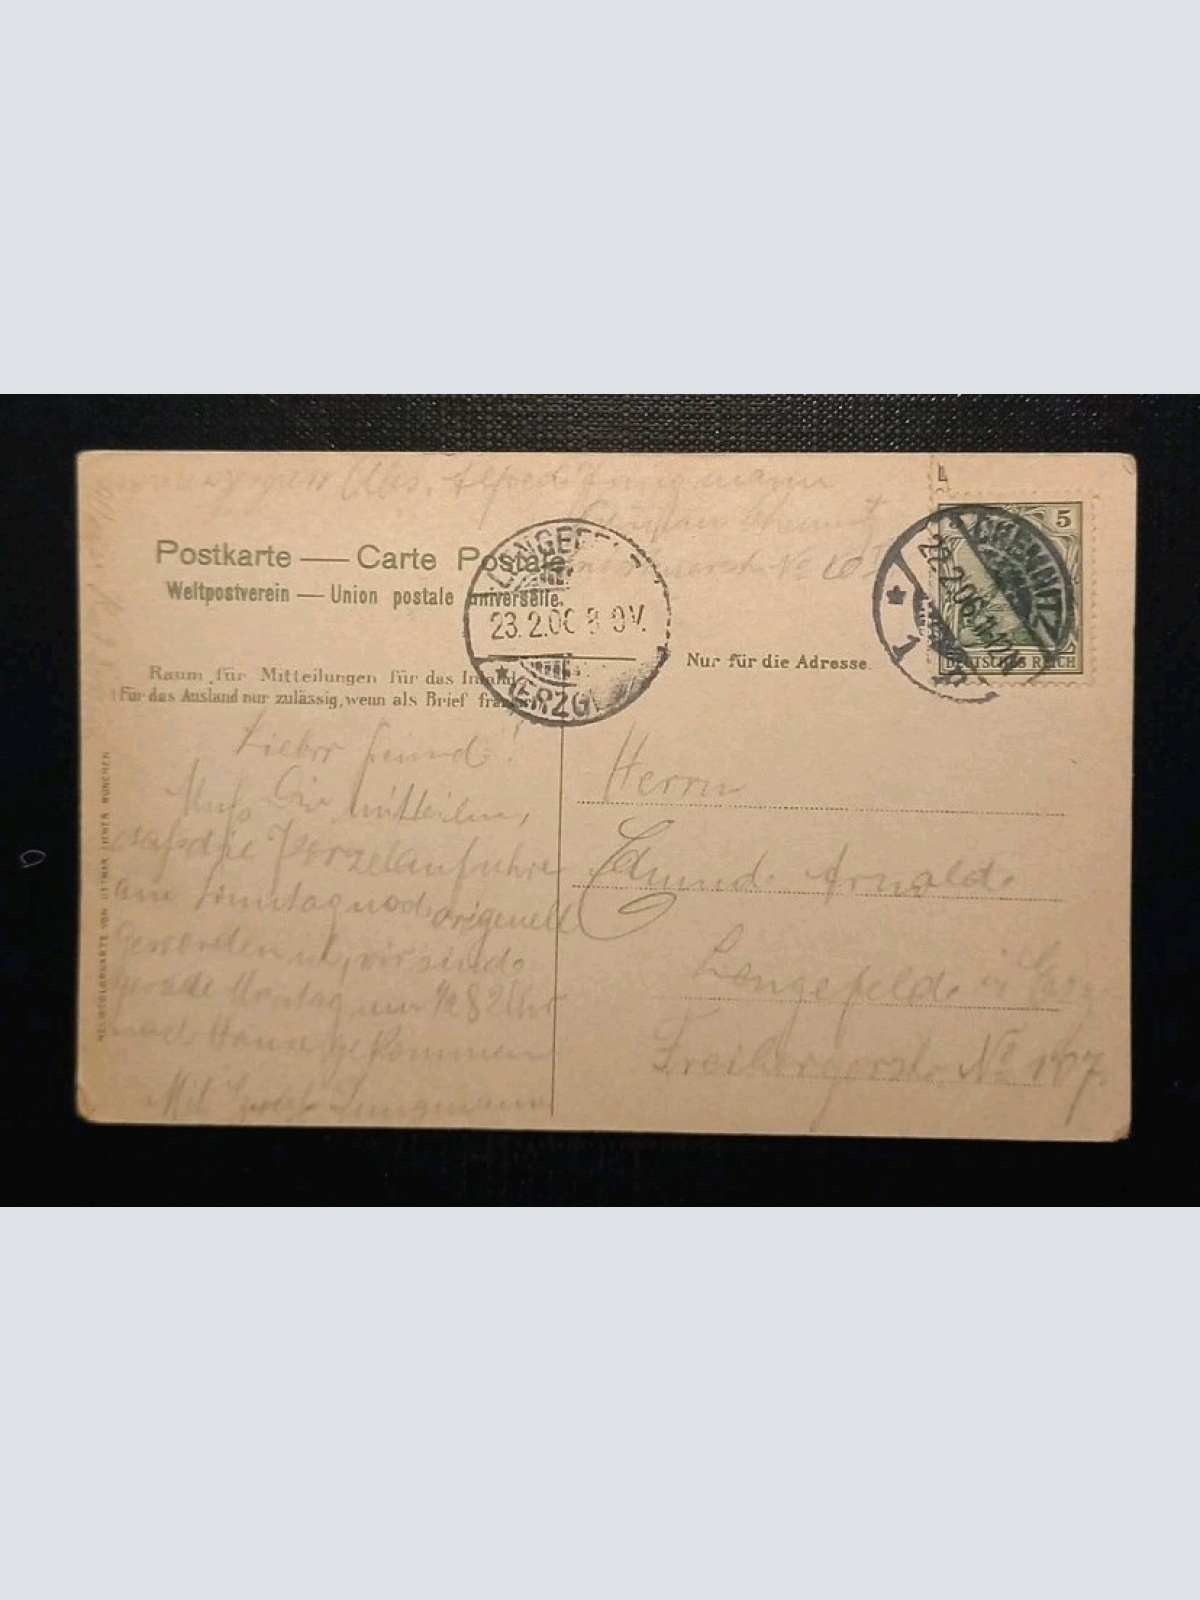 Abs. Alfred Jungmann
No 10 I
Postkarte — Carte Postale
Weltpostverein — Union postale universelle.
LENGEFELD
23.2.06 8-9V.
* (ERZGEB.)
CHEMNITZ
22.2.06.11-12V.
* 1
5
DEUTSCHES REICH
Raum für Mitteilungen für das Inland
(Für das Ausland nur zulässig, wenn als Brief
Nur für die Adresse.
Lieber Freund!
Muß Dir mitteilen,
daß die Porzelanfuhre
am Sonntag noch origenell
geworden ist, wir sind
gerade Montag um 1/2 8 Uhr
nach Hause gekommen
Mit Gruß Jungmann
Herrn
Edmund Arnold
Lengefeld i. Erzg.
Freibergerstr. No 107.
MÜNCHEN